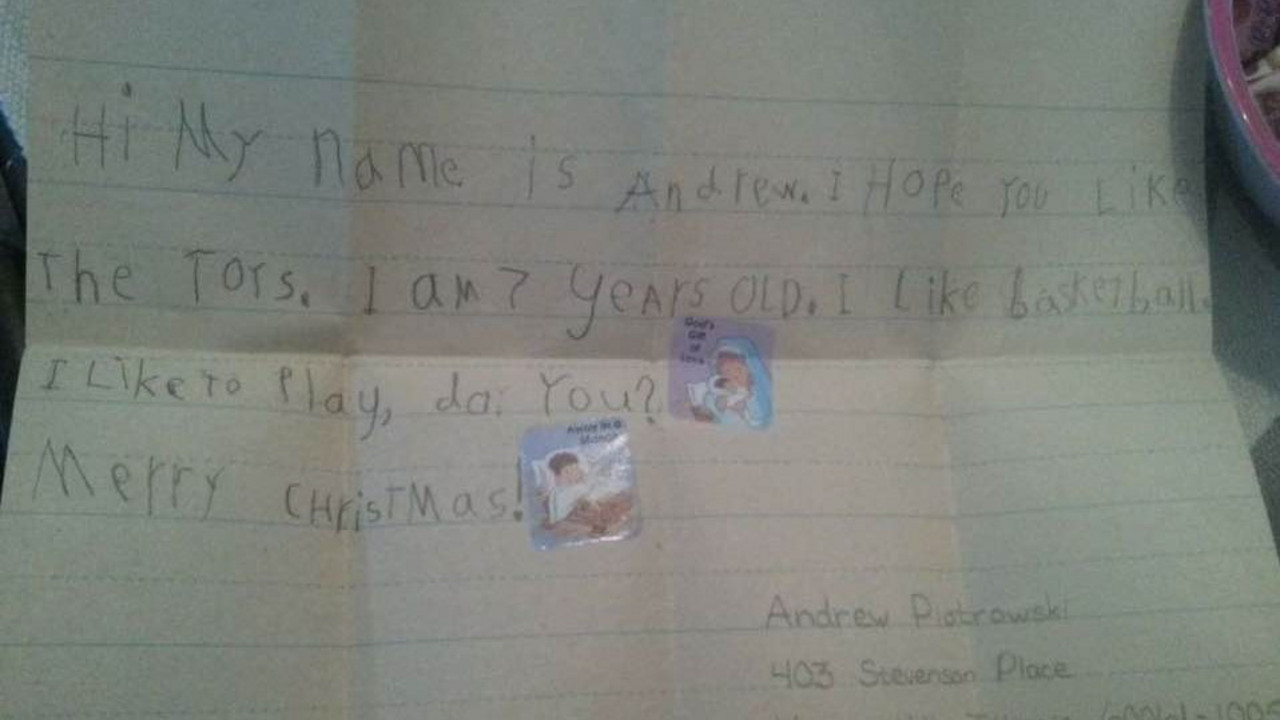 Hi My name is Andrew. I HOPe YOU Like
The TOYS. I am 7 YeArs OLD. I Like basketball.
I Like To Play, do You?
God's
Gift
of
Love
Merry CHrisTMas!
Away in a
Manger
Andrew Piotrowski
403 Stevenson Place